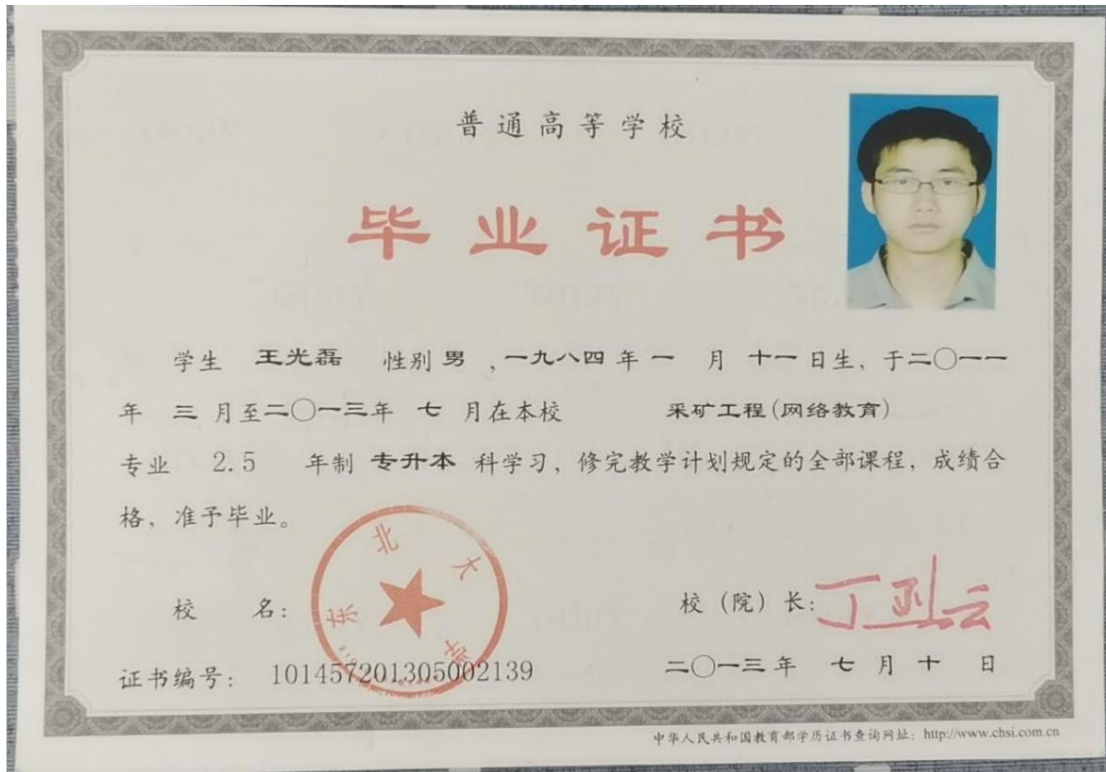 普通高等学校
毕业证书
学生 王光磊 性别 男 ,一九八四 年 一 月 十一 日生, 于二〇一一
年 三 月至二〇一三年 七 月在本校 采矿工程(网络教育)
专业 2.5 年制 专升本 科学习, 修完教学计划规定的全部课程, 成绩合
格, 准予毕业。
东北大学
校 名:
校(院)长: 丁烈云
证书编号: 101457201305002139
二〇一三年 七 月 十 日
中华人民共和国教育部学历证书查询网址: http://www.chsi.com.cn